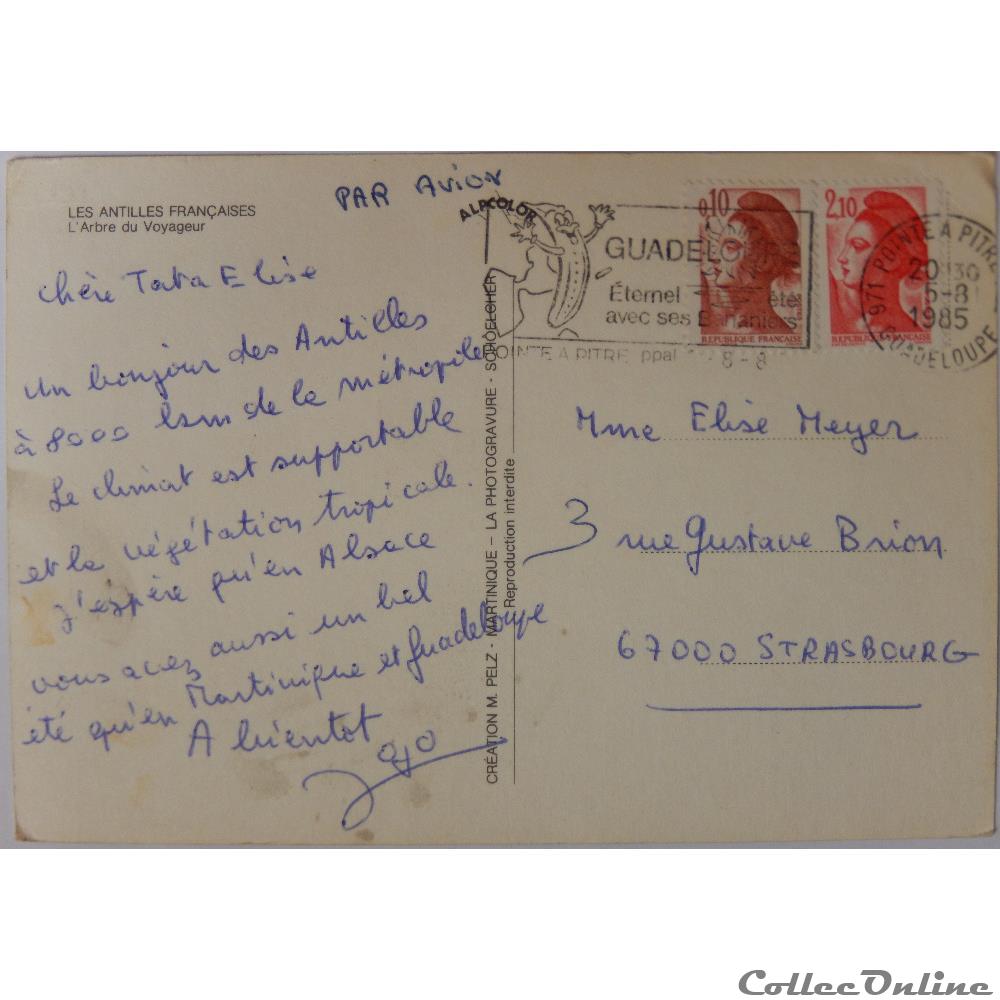 PAR AVION
LES ANTILLES FRANÇAISES
L'Arbre du Voyageur
ALPCOLOR
GUADELOUPE
Éternel été
avec ses Bananiers
POINTE A PITRE ppal
8-8
0,10
REPUBLIQUE FRANÇAISE
2,10
REPUBLIQUE FRANÇAISE
971 POINTE A PITRE
20H30
5-8
1985
GUADELOUPE
Chère Tata Elise
Un bonjour des Antilles
à 8000 km de la métropole
Le climat est supportable
et la végétation tropicale.
J'espère qu'en Alsace
vous avez aussi un bel
été qu'en Martinique et Guadeloupe
A bientot
Jojo
CRÉATION M. PELZ - MARTINIQUE - LA PHOTOGRAVURE - SCHOELCHER
Reproduction interdite
Mme Elise Meyer
3 rue Gustave Brion
67000 STRASBOURG
CollecOnline